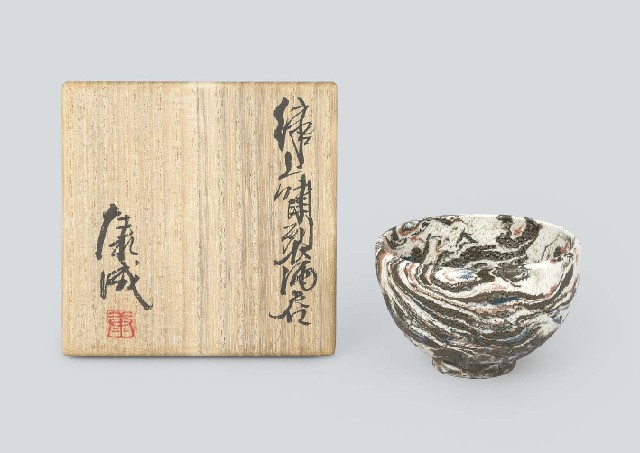 練上嘯裂酒呑
康成